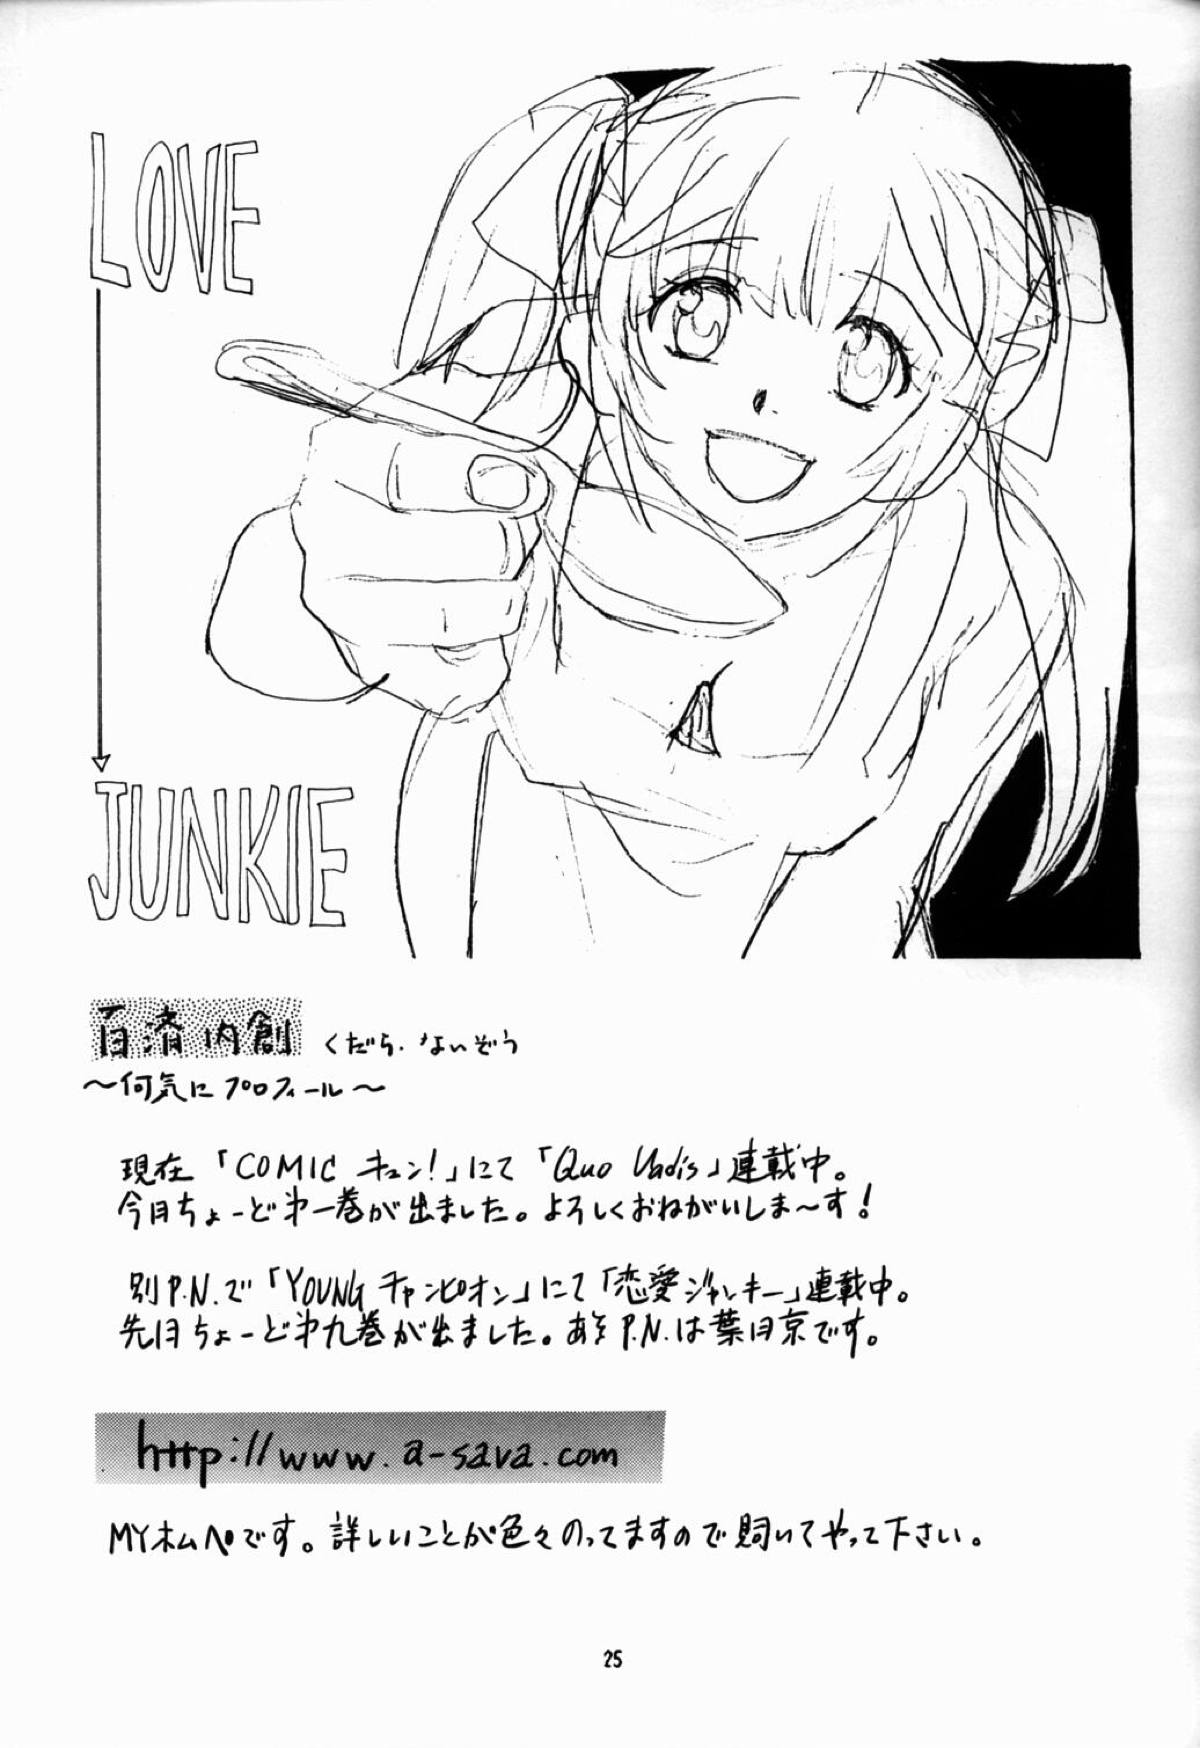 LOVE
JUNKIE
百済内創 くだら.ないぞう
〜何気にプロフィール〜
現在「COMIC キュン!」にて「Quo Vadis」連載中。
今月ちょーど第一巻が出ました。よろしくおねがいしま〜す!
別P.N.で「YOUNG チャンピオン」にて「恋愛ジャンキー」連載中。
先月ちょーど第九巻が出ました。あ P.N.は葉月京です。
http://www.a-sava.com
MYホムペです。詳しいことが色々のってますので覗いてやって下さい。
25